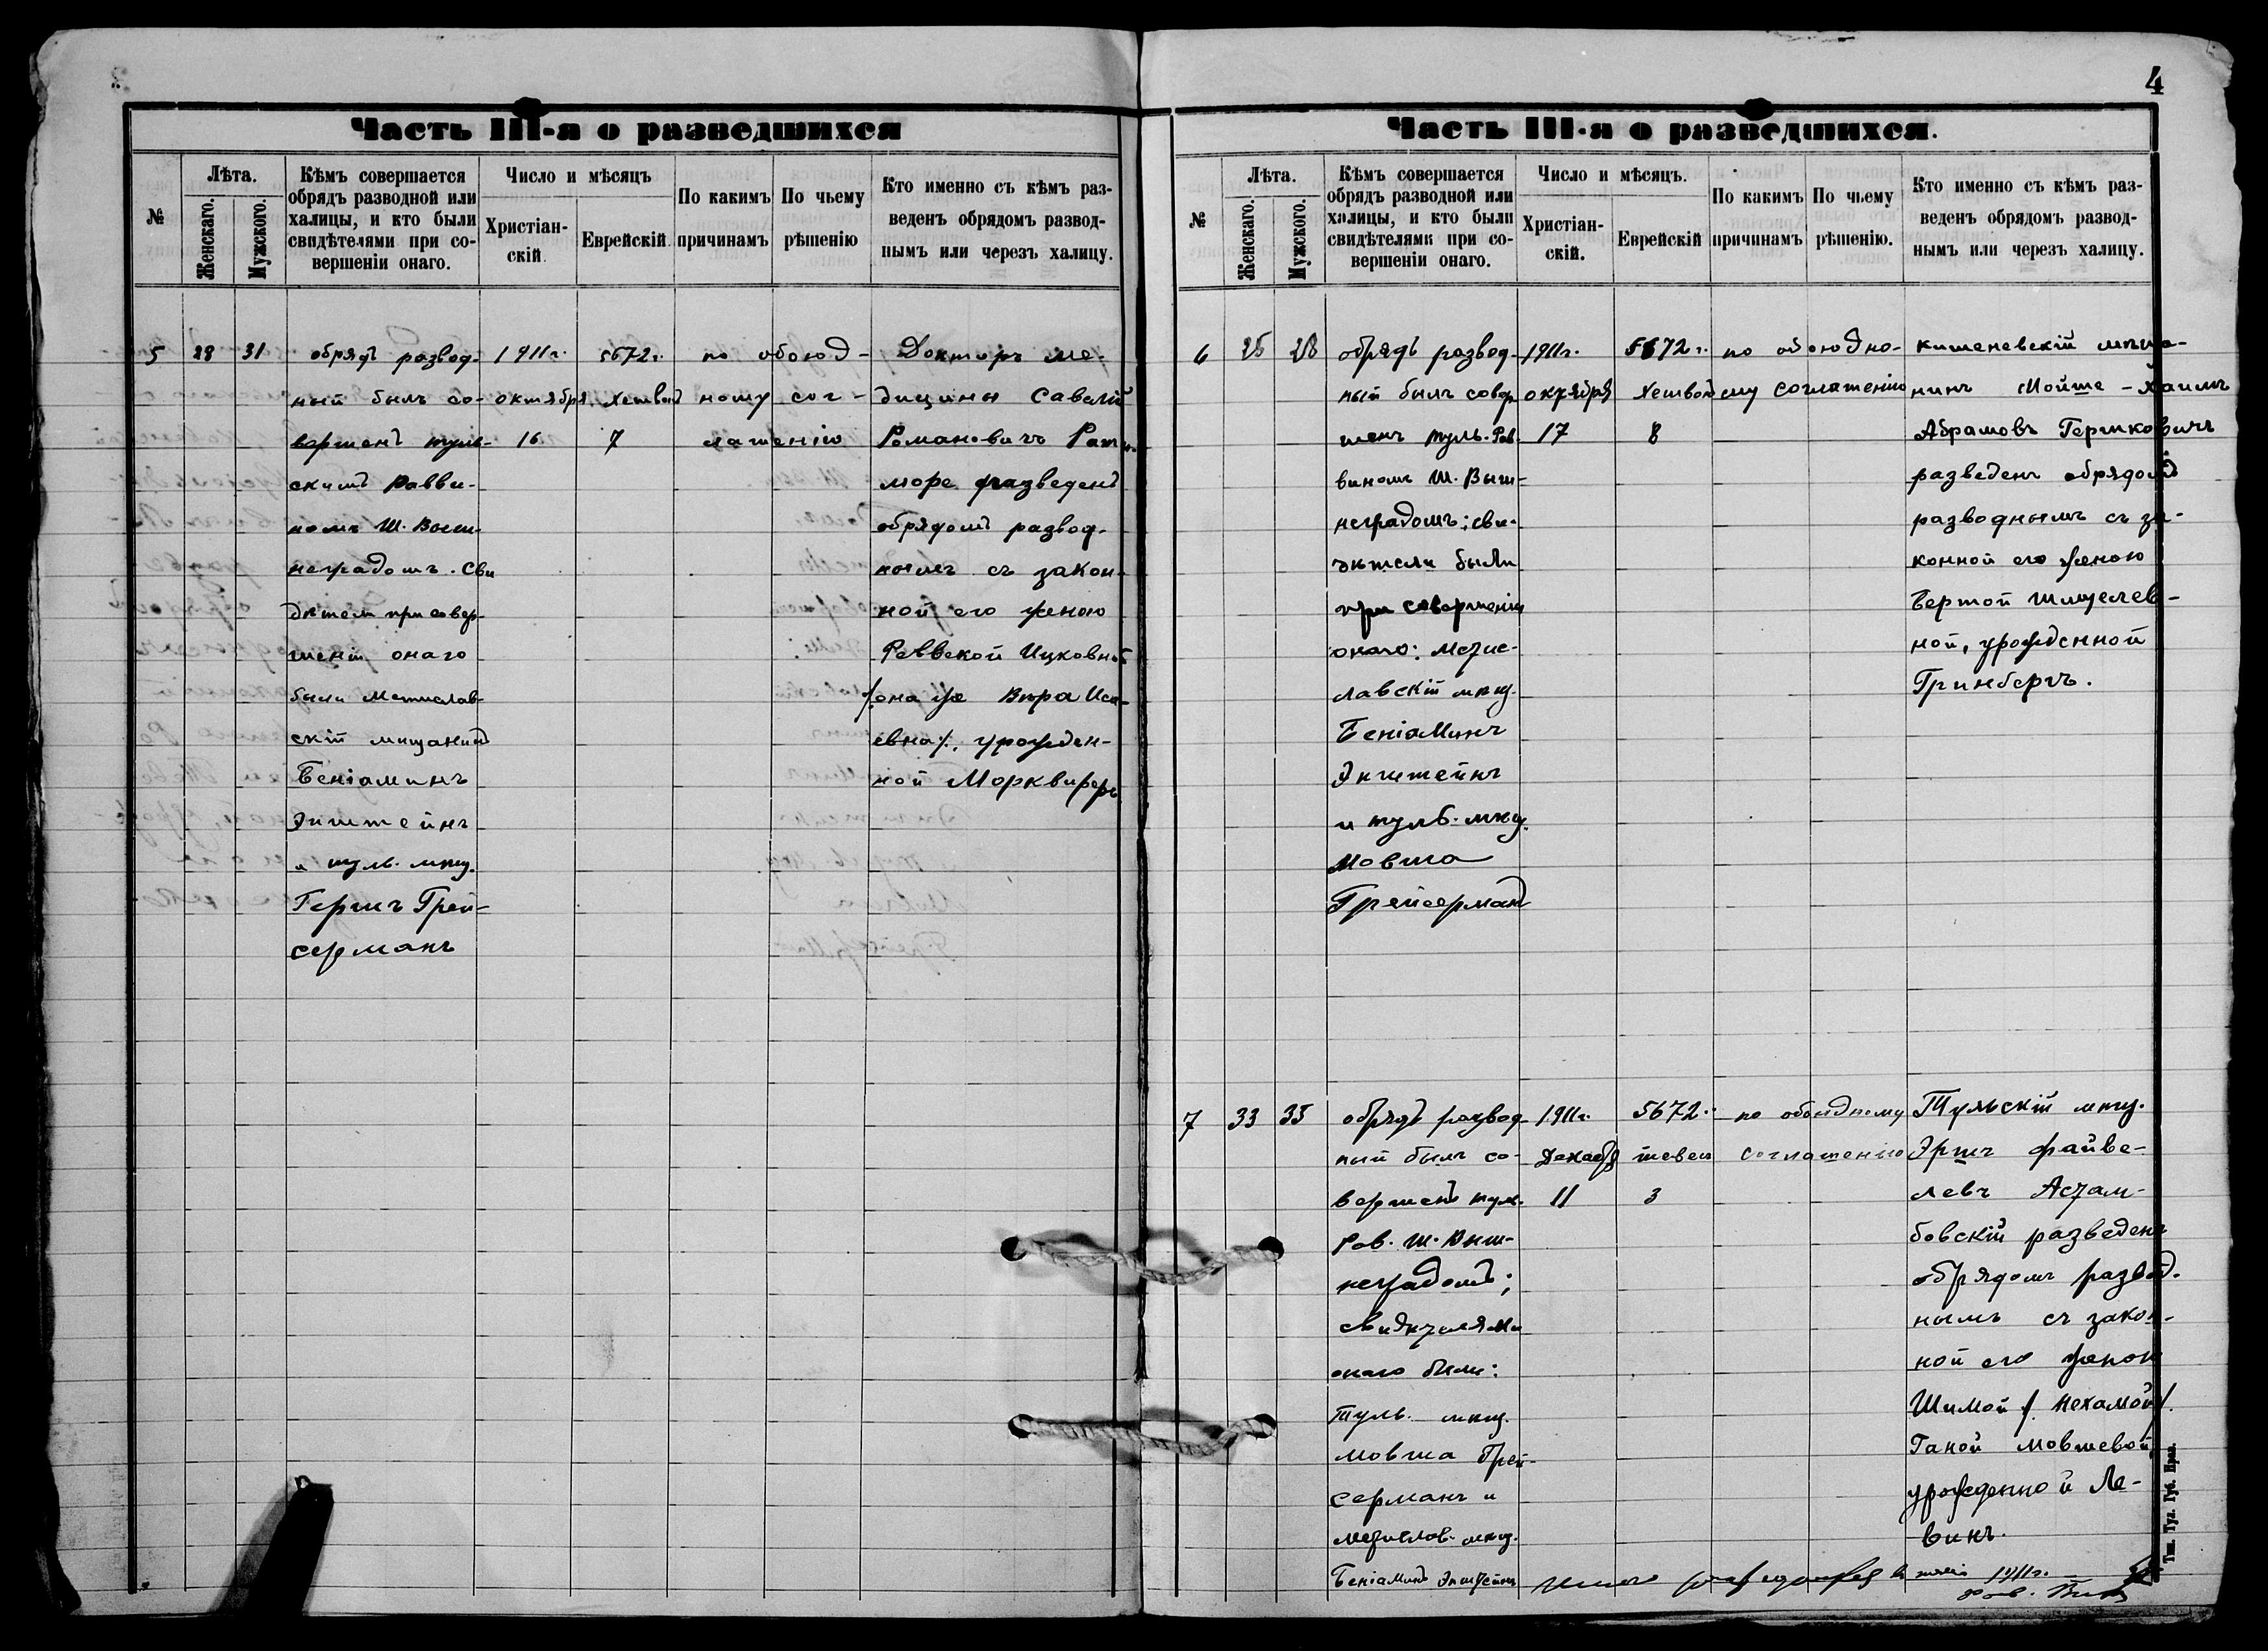 4
Часть III-я о разведшихся
№
Лѣта.
Женскаго.
Мужского.
Кѣмъ совершается
обрядъ разводной или
халицы, и кто были
свидѣтелями при со-
вершеніи онаго.
Число и мѣсяцъ
Христіан-
скій.
Еврейскій.
По какимъ
причинамъ
По чьему
рѣшенію
Кто именно съ кѣмъ раз-
веденъ обрядомъ развод-
нымъ или черезъ халицу.
5
28
31
обрядъ развод-
ный былъ со-
вершенъ туль-
скимъ Равви-
номъ Ш. Выш-
неградомъ. Сви
дѣтели при совер-
шеніи онаго
были Мстислав-
скій мѣщанинъ
Беніаминъ
Эпштейнъ
и туль. мѣщ.
Гершъ Грей-
серманъ
1911 г.
октября
16
5672 г.
Хешвонъ
7
по обоюд-
ному сог-
лашенію
Докторъ ме-
дицины Савелій
Романовичъ
море разведенъ
обрядомъ развод-
нымъ съ закон-
ной его женою
Реввекой Ицковной
/. она же Вѣра Иса-
евна /., урожден-
ной
Часть III-я о разведшихся.
№
Лѣта.
Женскаго.
Мужского.
Кѣмъ совершается
обрядъ разводной или
халицы, и кто были
свидѣтелями при со-
вершеніи онаго.
Число и мѣсяцъ.
Христіан-
скій.
Еврейскій
По какимъ
причинамъ
По чьему
рѣшенію.
Кто именно съ кѣмъ раз-
веденъ обрядомъ развод-
нымъ или черезъ халицу.
6
25
28
обрядъ развод-
ный былъ совер
шенъ туль. Рав-
виномъ Ш. Выш-
неградомъ; сви-
дѣтели были
при совершеніи
онаго: Мстис-
лавскій мѣщ.
Беніаминъ
Эпштейнъ
и тульс. мѣщ.
Мовша
Грейсерманъ
1911 г.
октября
17
5672 г.
Хешвонъ
8
по обоюдно-
му соглашенію
кишеневскій мѣща-
нинъ Мойше - Хаимъ
Абрамовъ Гершковичъ
разведенъ обрядомъ
разводнымъ съ за-
конной его женою
Бертой Шмуелев-
ной, урожденной
Гринбергъ.
7
33
35
обрядъ развод-
ный былъ со-
вершенъ туль.
Рав. Ш. Выш-
неградомъ;
свидѣтелями
онаго были:
туль. мѣщ.
Мовша Грей-
серманъ и
мстислав. мѣщ.
Беніаминъ Эпштейнъ
1911 г.
Декабря
11
5672 г.
тевесъ
3
по обоюдному
соглашенію
Тульскій мѣщ.
Эршъ Файве-
левъ Астам-
бовскій разведенъ
обрядомъ развод-
нымъ съ закон-
ной его женою
Шимой /. Нехамой /.
Ганой Мовшевой,
урожденной Ле-
винъ.
1911 г.
Рав.
Тип. Тул. Губ. Прав.